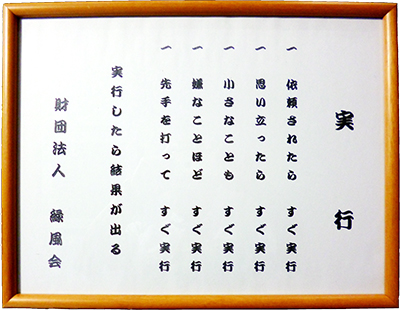 実行
一 依頼されたら すぐ実行
一 思い立ったら すぐ実行
一 小さなことも すぐ実行
一 嫌なことほど すぐ実行
一 先手を打って すぐ実行
実行したら結果が出る
財団法人 緑風会